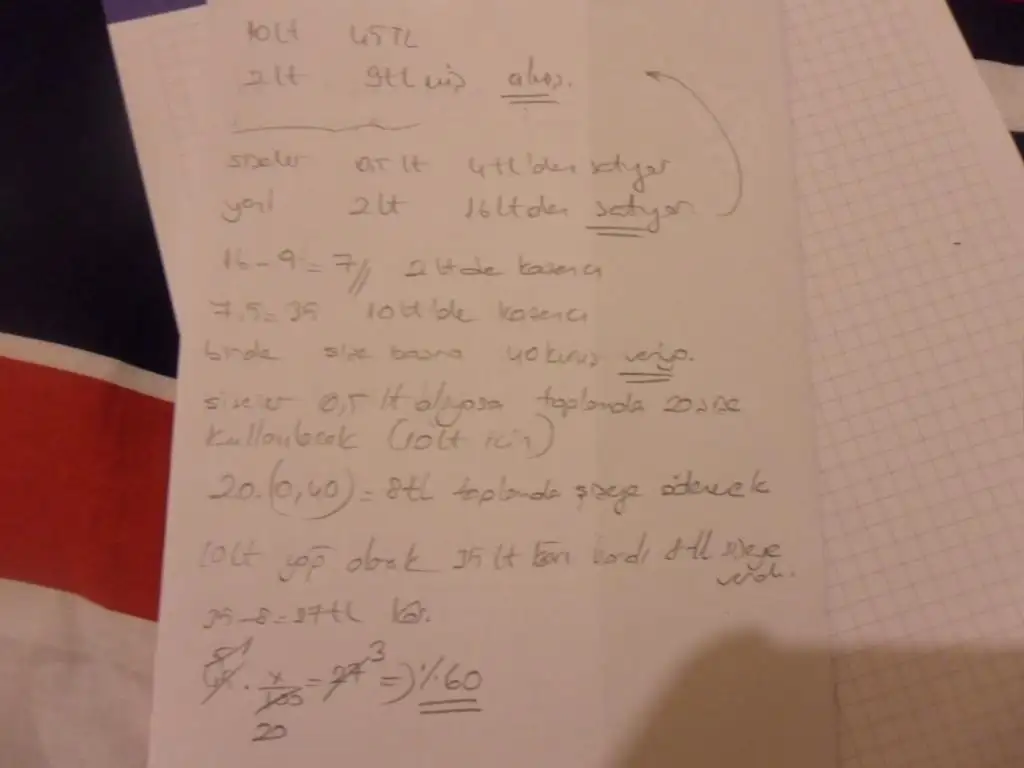 10 Lt 45 TL
2 lt 9tl alış.
şişeler 0,5 lt 4tl'den satıyor
yani 2lt 16ltden satıyor
16-9=7// 2 ltde kazancı
7.5=35 10lt'de kazancı
birde şişe başına 40 kuruş veriyo.
şişeler 0,5 lt alıyosa toplamda 20 şişe
kullanılacak (10lt için)
20.(0,40)=8tl toplamda şişeye ödenecek
10lt yağ olarak 35 lt karı vardı 8tl şişeye
verdi.
35-8=27tl kâr.
45 . x/100 = 27 3 => %60
20